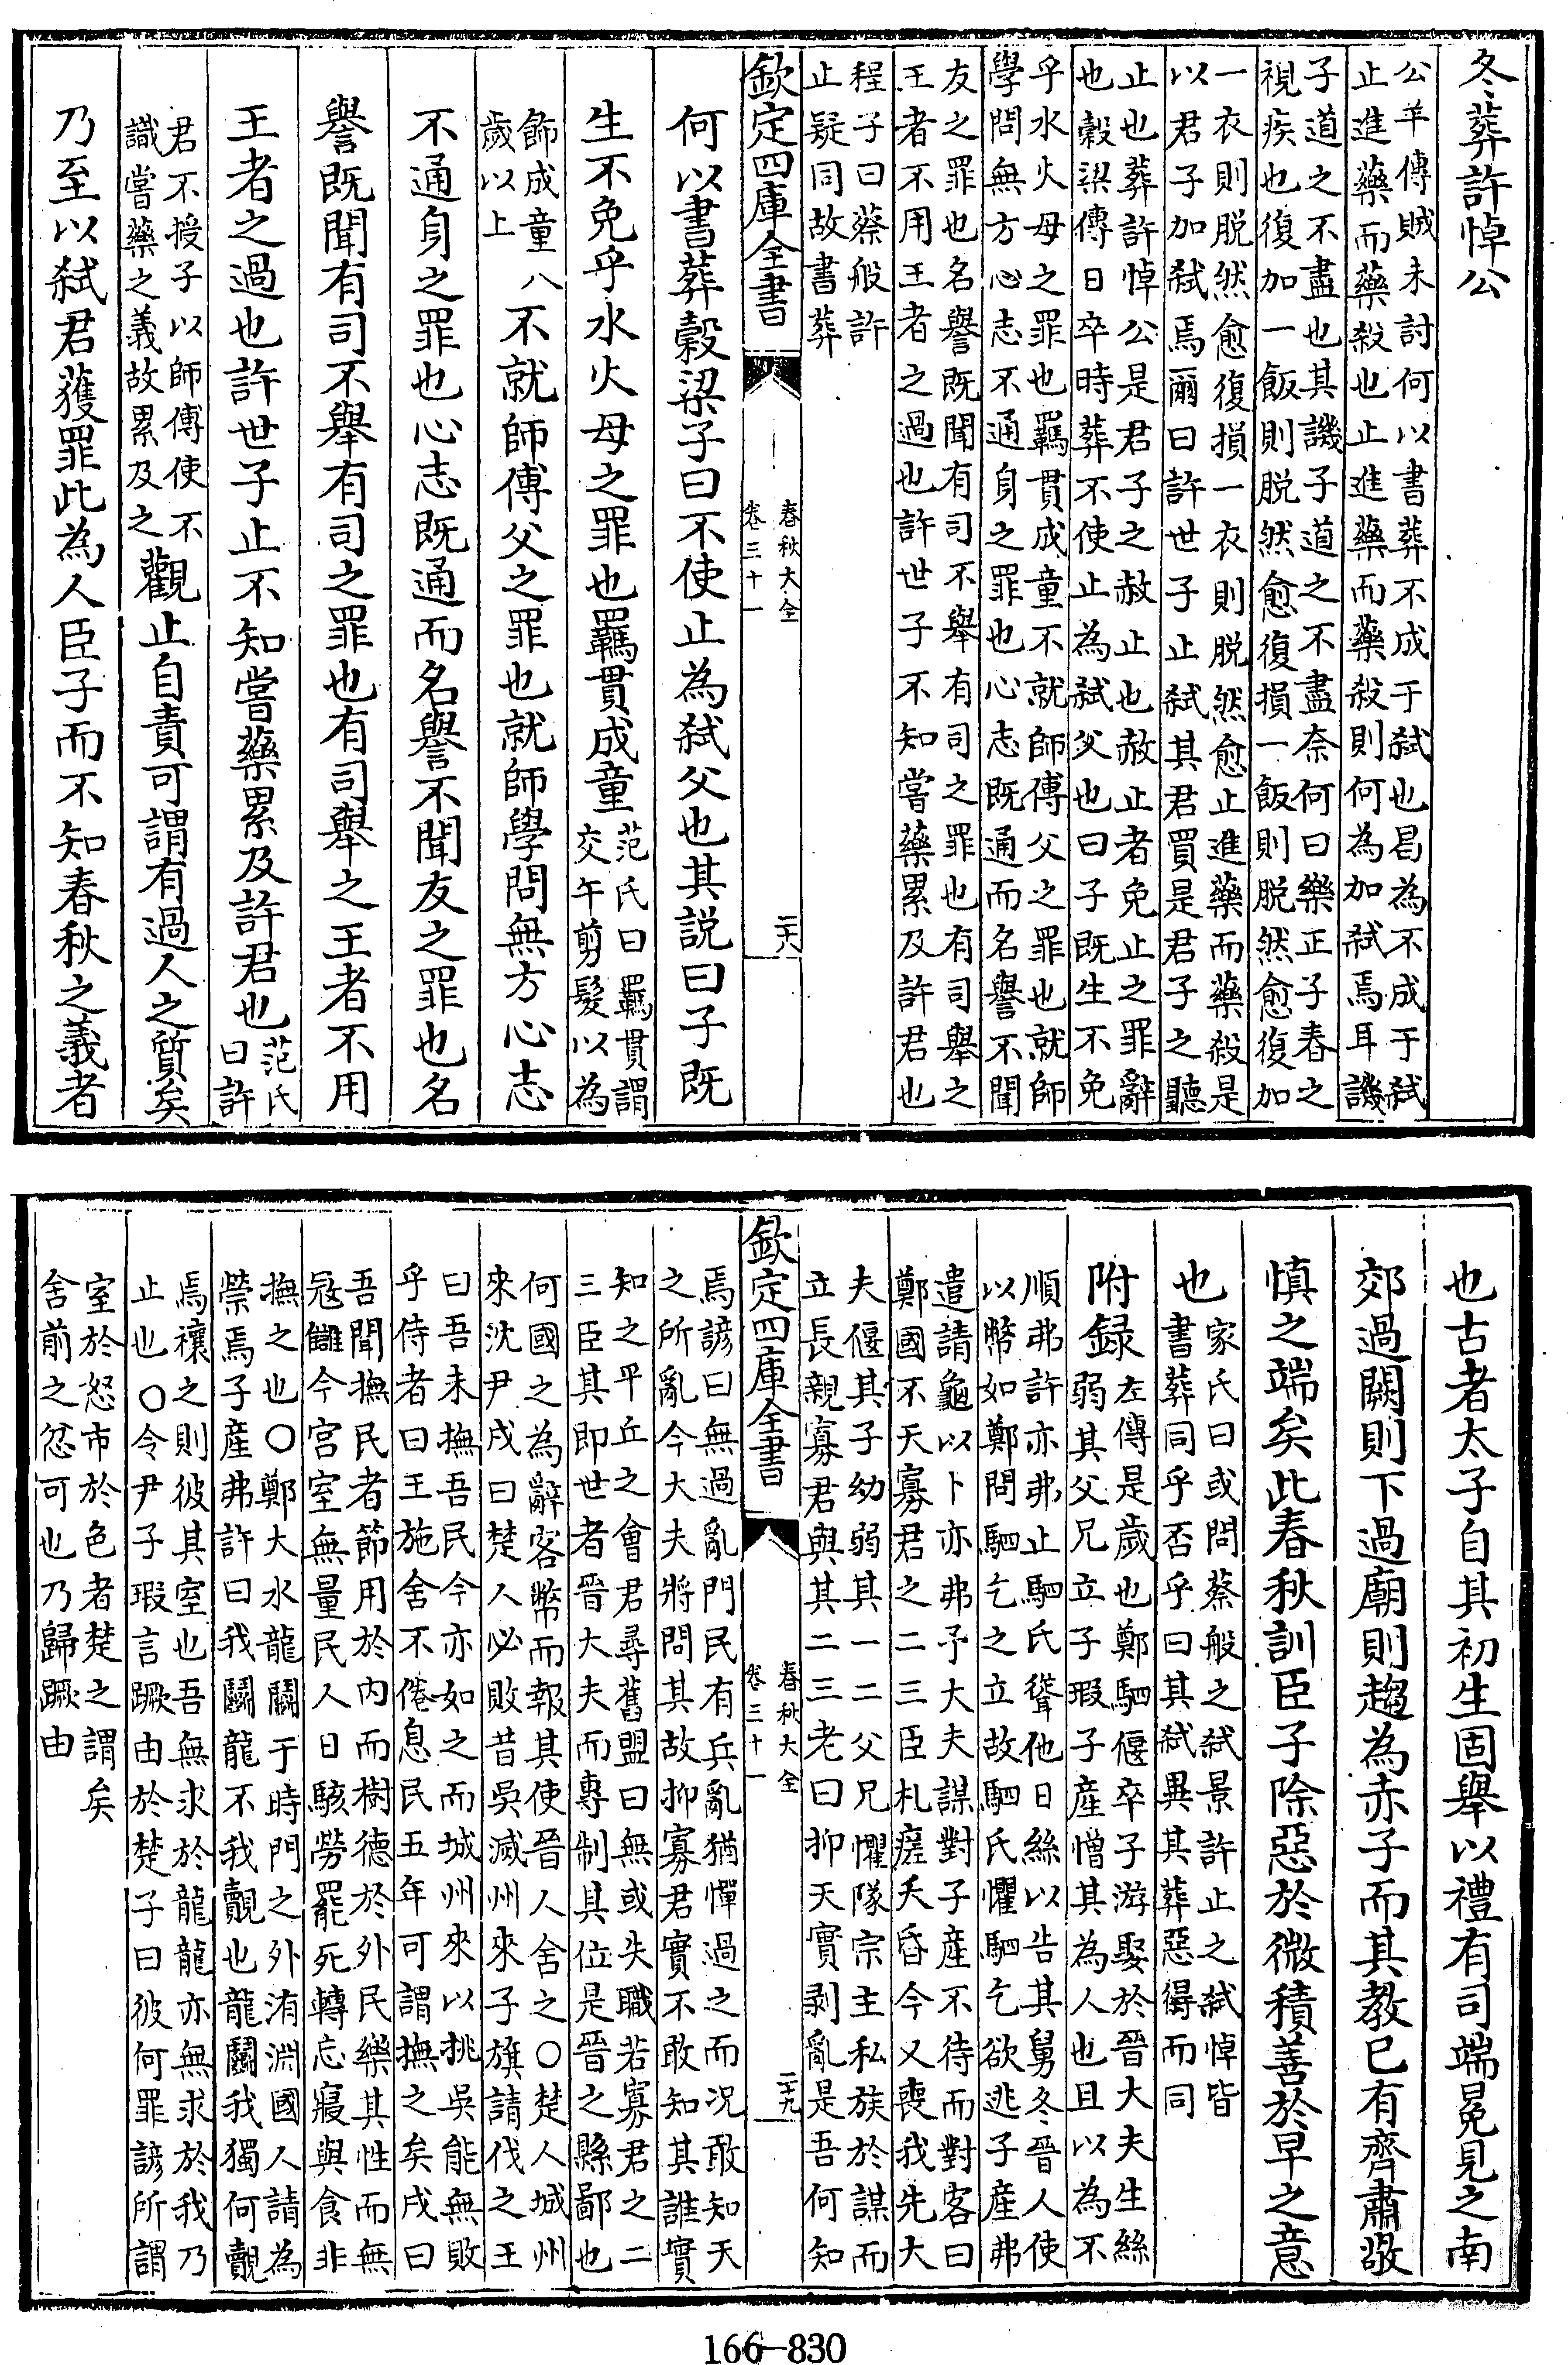 冬葬許悼公
公羊傳賊未討何以書葬不成于弑也曷為不成于弑
止進藥而藥殺也止進藥而藥殺則何為加弑焉耳譏
子道之不盡也其譏子道之不盡奈何曰樂正子春之
視疾也復加一飯則脫然愈復損一飯則脫然愈復加
一衣則脫然愈復損一衣則脫然愈止進藥而藥殺是
以君子加弑焉爾曰許世子止弑其君買是君子之聽
止也葬許悼公是君子之赦止也赦止者免止之罪辭
也穀梁傳日卒時葬不使止為弑父也曰子既生不免
乎水火母之罪也羈貫成童不就師傅父之罪也就師
學問無方心志不通身之罪也心志既通而名譽不聞
友之罪也名譽既聞有司不舉有司之罪也有司舉之
王者不用王者之過也許世子不知嘗藥累及許君也
程子曰蔡般許
止疑同故書葬
欽定四庫全書
春秋大全
卷三十一
二十八
何以書葬穀梁子曰不使止為弑父也其說曰子既
生不免乎水火母之罪也羈貫成童范氏曰羈貫謂交午剪髮以為
飾成童八歲以上不就師傅父之罪也就師學問無方心志
不通身之罪也心志既通而名譽不聞友之罪也名
譽既聞有司不舉有司之罪也有司舉之王者不用
王者之過也許世子止不知嘗藥累及許君也范氏曰許
君不授子以師傅使不識嘗藥之義故累及之觀止自責可謂有過人之質矣
乃至以弑君獲罪此為人臣子而不知春秋之義者
也古者太子自其初生固舉以禮有司端冕見之南
郊過闕則下過廟則趨為赤子而其教已有齊肅敬
慎之端矣此春秋訓臣子除惡於微積善於早之意
也家氏曰或問蔡般之弑景許止之弑悼皆書葬同乎否乎曰其弑異其葬惡得而同
附録左傳是歲也鄭駟偃卒子游娶於晉大夫生絲弱其父兄立子瑕子產憎其為人也且以為不
順弗許亦弗止駟氏聳他日絲以告其舅冬晉人使
以幣如鄭問駟乞之立故駟氏懼駟乞欲逃子產弗
遣請龜以卜亦弗予大夫謀對子產不待而對客曰
鄭國不天寡君之二三臣札瘥夭昏今又喪我先大
夫偃其子幼弱其一二父兄懼隊宗主私族於謀而
立長親寡君與其二三老曰抑天實剥亂是吾何知
欽定四庫全書
春秋大全
卷三十一
二十九
焉諺曰無過亂門民有兵亂猶憚過之而况敢知天
之所亂今大夫將問其故抑寡君實不敢知其誰實
知之平丘之會君尋舊盟曰無或失職若寡君之二
三臣其即世者晉大夫而專制其位是晉之縣鄙也
何國之為辭客幣而報其使晉人舍之○楚人城州
來沈尹戌曰楚人必敗昔吳滅州來子旗請伐之王
曰吾未撫吾民今亦如之而城州來以挑吳能無敗
乎侍者曰王施舍不倦息民五年可謂撫之矣戌曰
吾聞撫民者節用於内而樹德於外民樂其性而無
寇讎今宮室無量民人日駭勞罷死轉忘寢與食非
撫之也○鄭大水龍鬬于時門之外洧淵國人請為
禜焉子產弗許曰我鬬龍不我覿也龍鬬我獨何覿
焉禳之則彼其室也吾無求於龍龍亦無求於我乃
止也○令尹子瑕言蹶由於楚子曰彼何罪諺所謂
室於怒市於色者楚之謂矣
舍前之忿可也乃歸蹶由
166-830